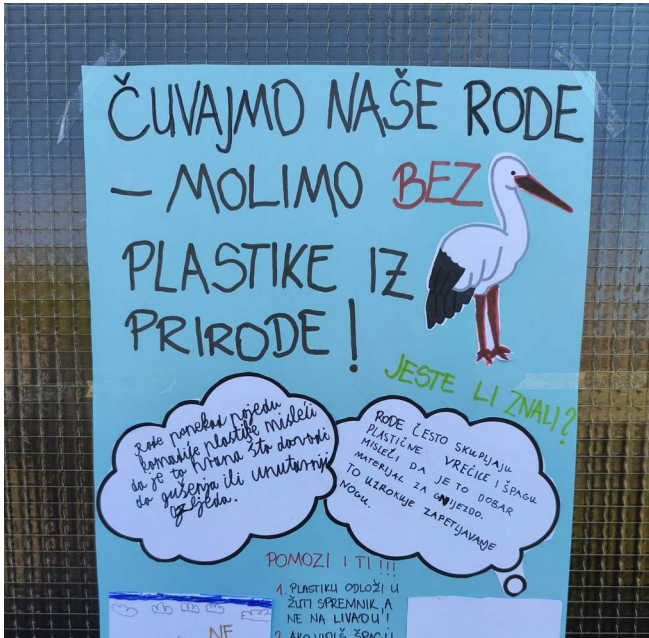 ČUVAJMO NAŠE RODE
– MOLIMO BEZ
PLASTIKE IZ
PRIRODE!
JESTE LI ZNALI?
Rode ponekad pojedu
komadiće plastike misleći
da je to hrana što dovodi
do gušenja ili unutarnjih
ozljeda.
RODE ČESTO SKUPLJAJU
PLASTIČNE VREĆICE I ŠPAGU
MISLEĆI, DA JE TO DOBAR
MATERIJAL ZA GNIJEZDO.
TO UZROKUJE ZAPETLJAVANJE
NOGU.
POMOZI I TI!!!
1. PLASTIKU ODLOŽI U
ŽUTI SPREMNIK, A
NE NA LIVADU!
2. AKO VIDIŠ ŠPAGU
NE